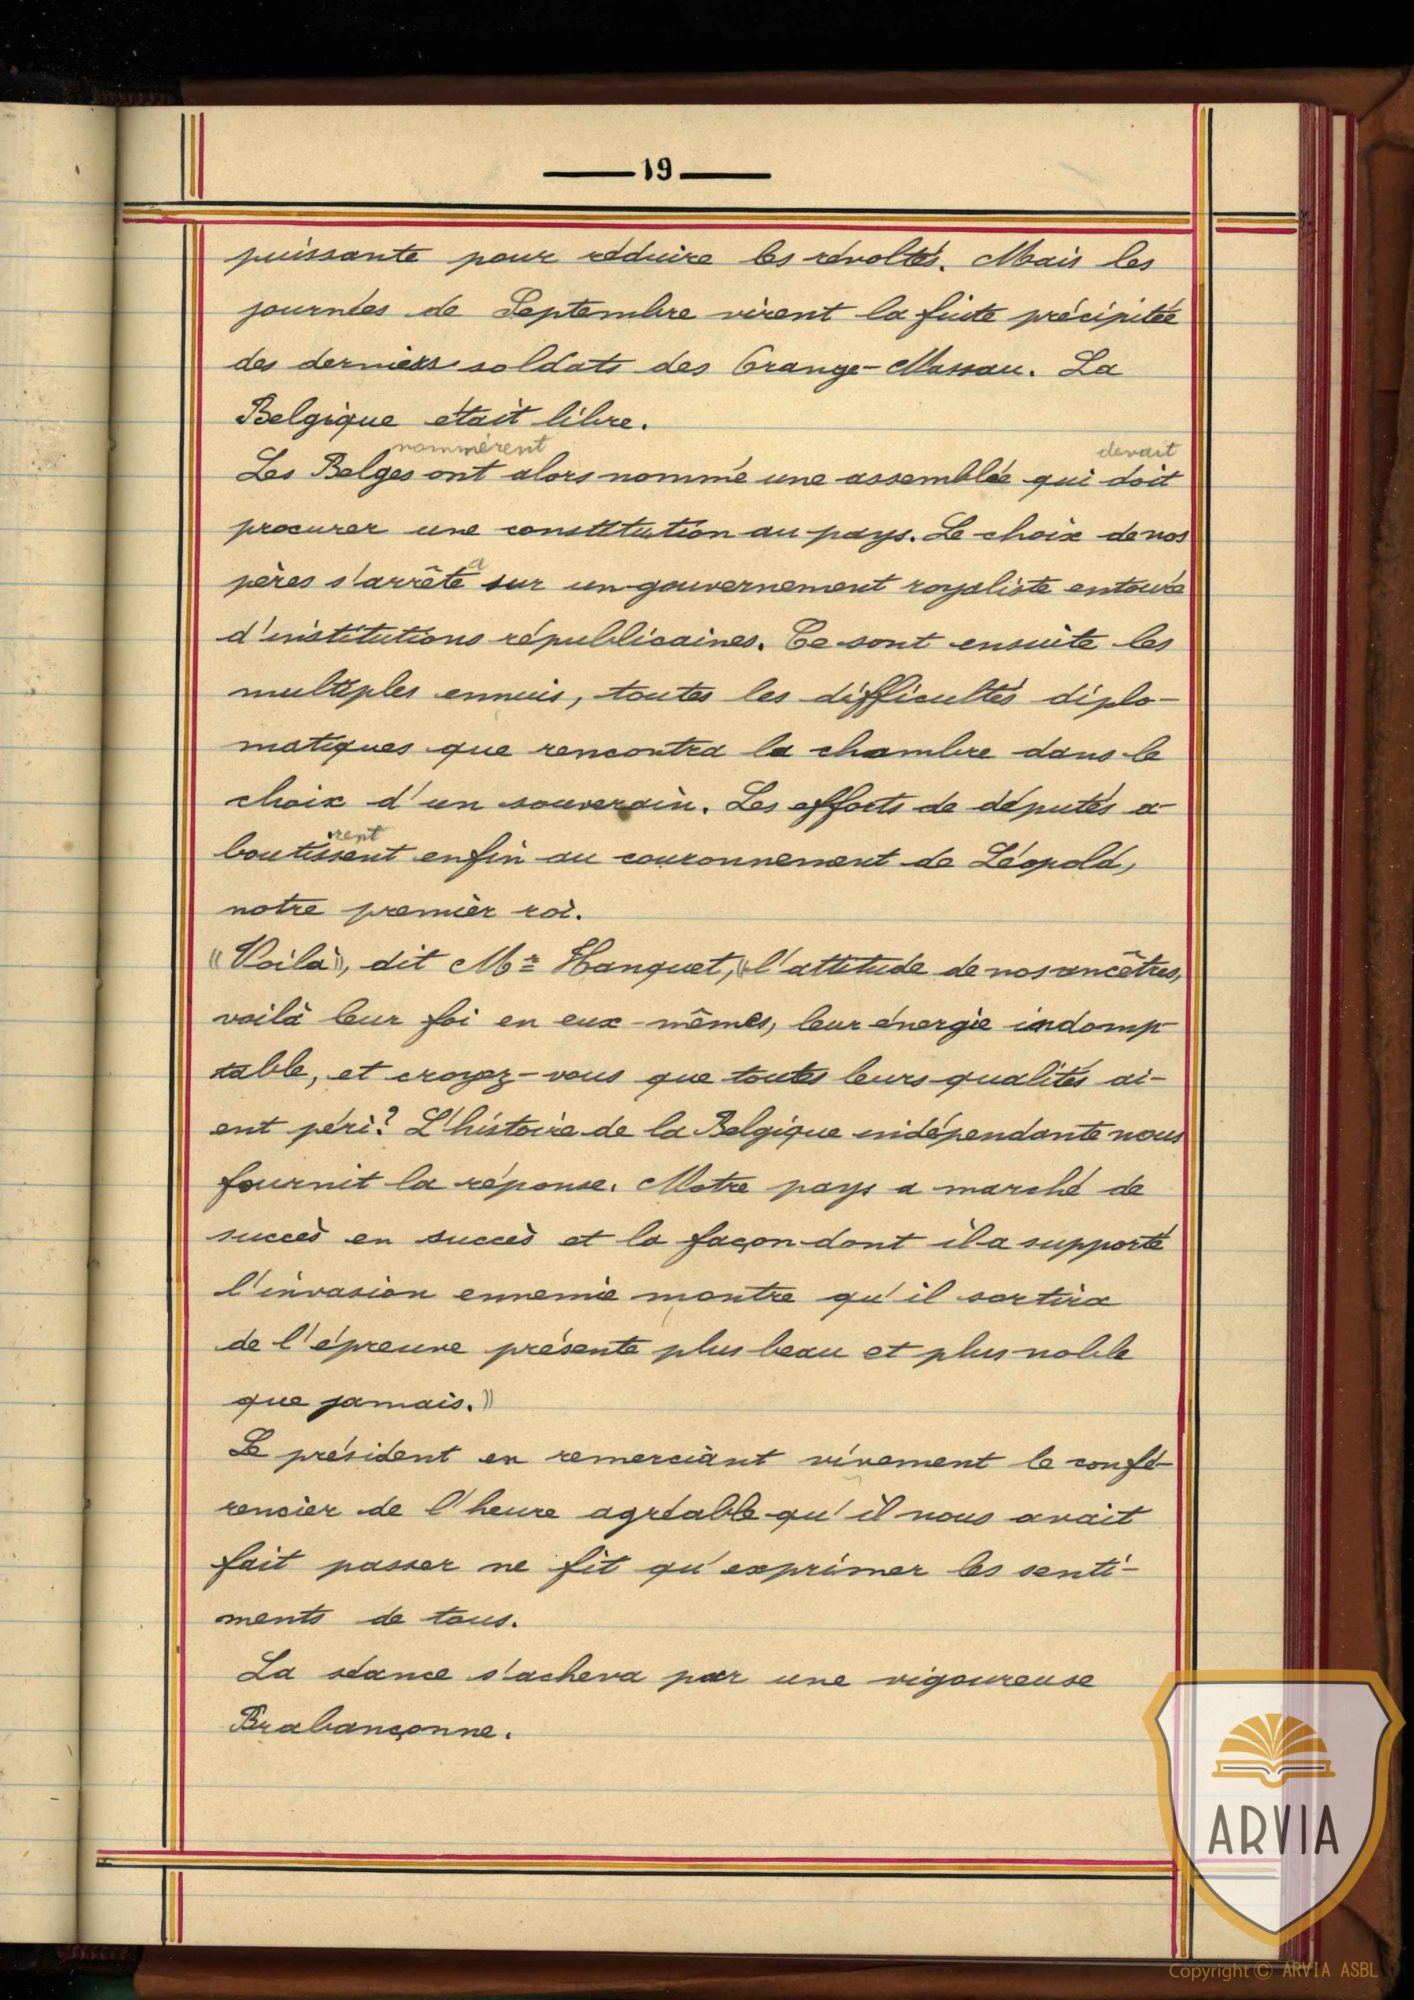 19
puissante pour réduire les révoltés. Mais les
journées de Septembre virent la fuite précipitée
des derniers soldats des Orange-Nassau. La
Belgique était libre.
nommèrent devait
Les Belges ont alors nommé une assemblée qui doit
procurer une constitution au pays. Le choix de nos
a
pères s'arrête sur un gouvernement royaliste entouré
d'institutions républicaines. Ce sont ensuite les
multiples ennuis, toutes les difficultés diplo-
matiques que rencontra la chambre dans le
choix d'un souverain. Les efforts de députés a-
rent
boutissent enfin au couronnement de Léopold,
notre premier roi.
"Voilà", dit Mr Hanquet, "l'attitude de nos ancêtres,
voilà leur foi en eux-mêmes, leur énergie indomp-
table, et croyez-vous que toutes leurs qualités ai-
ent péri? L'histoire de la Belgique indépendante nous
fournit la réponse. Notre pays a marché de
succès en succès et la façon dont il a supporté
l'invasion ennemie montre qu'il sortira
de l'épreuve présente plus beau et plus noble
que jamais."
Le président en remerciant vivement le confé-
rencier de l'heure agréable qu'il nous avait
fait passer ne fit qu'exprimer les senti-
ments de tous.
La séance s'acheva par une vigoureuse
Brabançonne.
ARVIA
Copyright © ARVIA ASBL